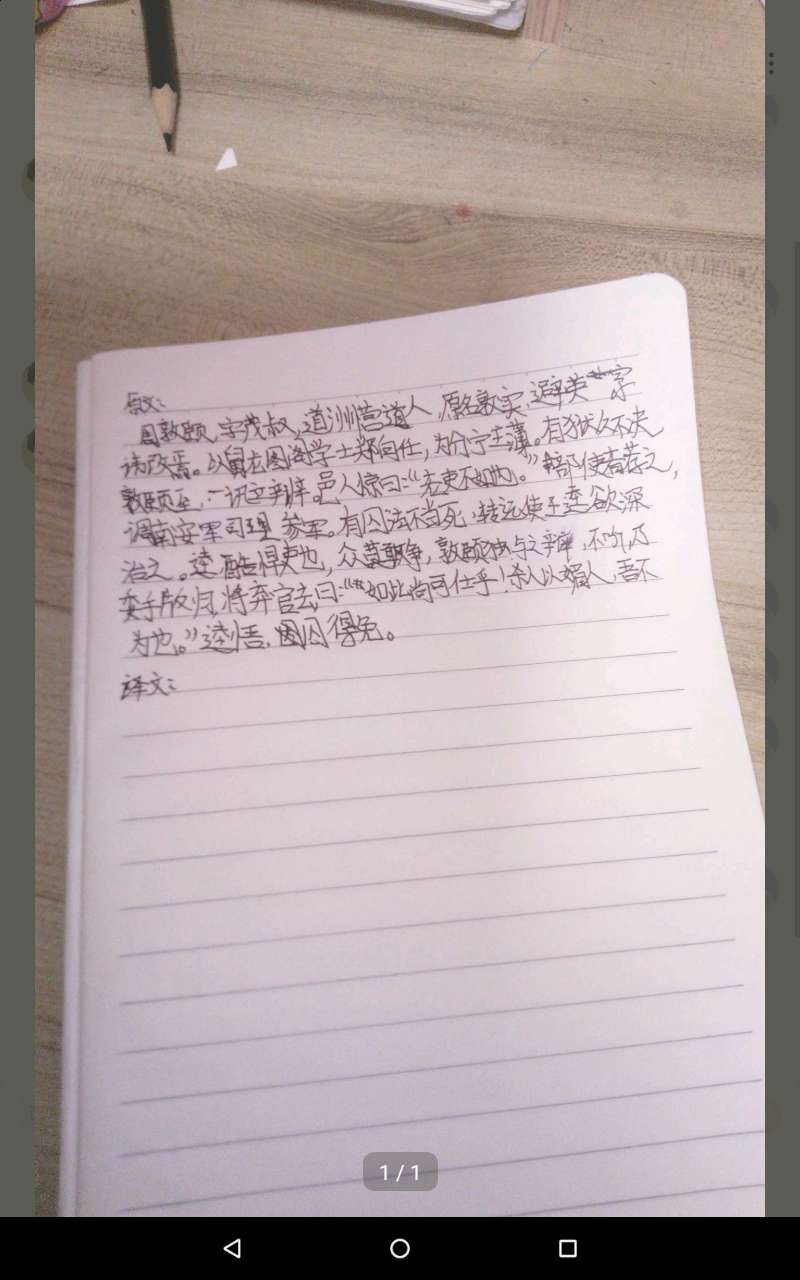 原文:
周敦颐,字茂叔,道洲营道人,原名敦实,避英 字
讳改焉。以舅龙图阁学士郑向任,为分宁主薄。有狱久不决,
敦颐至,一讯立辨。邑人惊曰:“老吏不如也。”部使者荐之,
调南安军司理参军。有囚法不当死,转运使王逵欲深
治之。逵酷悍吏也,众莫争,敦颐独与之辨,不听,乃
委手版归,将弃官去,曰:“如此尚可仕乎!杀人以媚人,吾不
为也。”逵悟,囚得免。
译文:
1 / 1